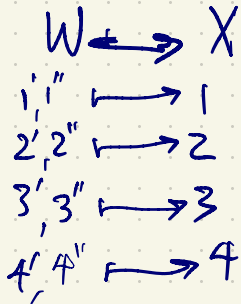 W ↔ X
1', 1" ↦ 1
2', 2" ↦ 2
3', 3" ↦ 3
4', 4" ↦ 4